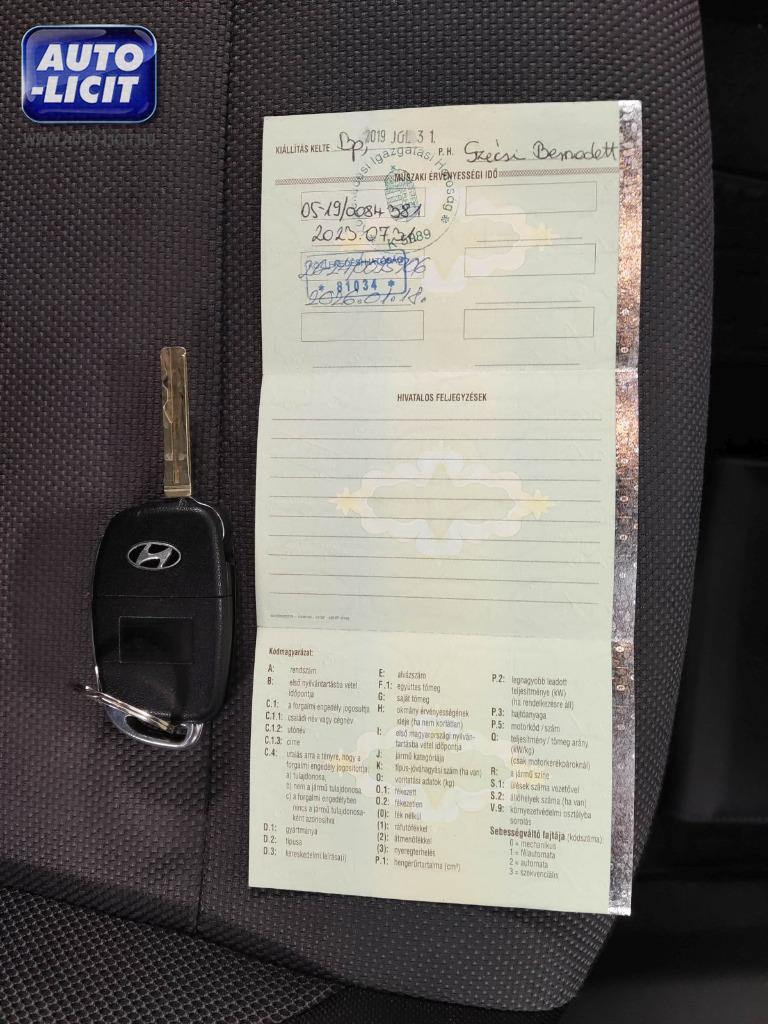 AUTO
-LICIT
KIÁLLÍTÁS KELTE Bp, 2019 JÚL 31. P.H. Szécsi Bernadett
MŰSZAKI ÉRVÉNYESSÉGI IDŐ
05-19/0084381
2023.07.31
K-5089
* 81034 *
2026.01.18.
HIVATALOS FELJEGYZÉSEK
Kódmagyarázat:
A: rendszám
B: első nyilvántartásba vétel
időpontja
C.1: a forgalmi engedély jogosultja
C.1.1: családi név vagy cégnév
C.1.2: utónév
C.1.3: címe
C.4: utalás arra a tényre, hogy a
forgalmi engedély jogosítottja:
a) tulajdonosa,
b) nem a jármű tulajdonosa,
c) a forgalmi engedélyben
nincs a jármű tulajdonosa-
ként azonosítva
D.1: gyártmánya
D.2: típusa
D.3: kereskedelmi leírása(i)
E: alvázszám
F.1: együttes tömeg
G: saját tömeg
H: okmány érvényességének
ideje (ha nem korlátlan)
I: első magyarországi nyilván-
tartásba vétel időpontja
J: jármű kategóriája
K: típus-jóváhagyási szám (ha van)
O: vontatási adatok (kg)
O.1: fékezett
O.2: fékezetlen
(0): fék nélkül
(1): ráfutófékkel
(2): átmenőfékkel
(3): nyeregterhelés
P.1: hengerűrtartalma (cm³)
P.2: legnagyobb leadott
teljesítménye (kW)
(ha rendelkezésre áll)
P.3: hajtóanyaga
P.5: motorkód / szám
Q: teljesítmény / tömeg arány
(kW/kg)
(csak motorkerékpároknál)
R: a jármű színe
S.1: ülések száma vezetővel
S.2: állóhelyek száma (ha van)
V.9: környezetvédelmi osztályba
sorolás
Sebességváltó fajtája (kódszáma)
0 = mechanikus
1 = félautomata
2 = automata
3 = szekvenciális